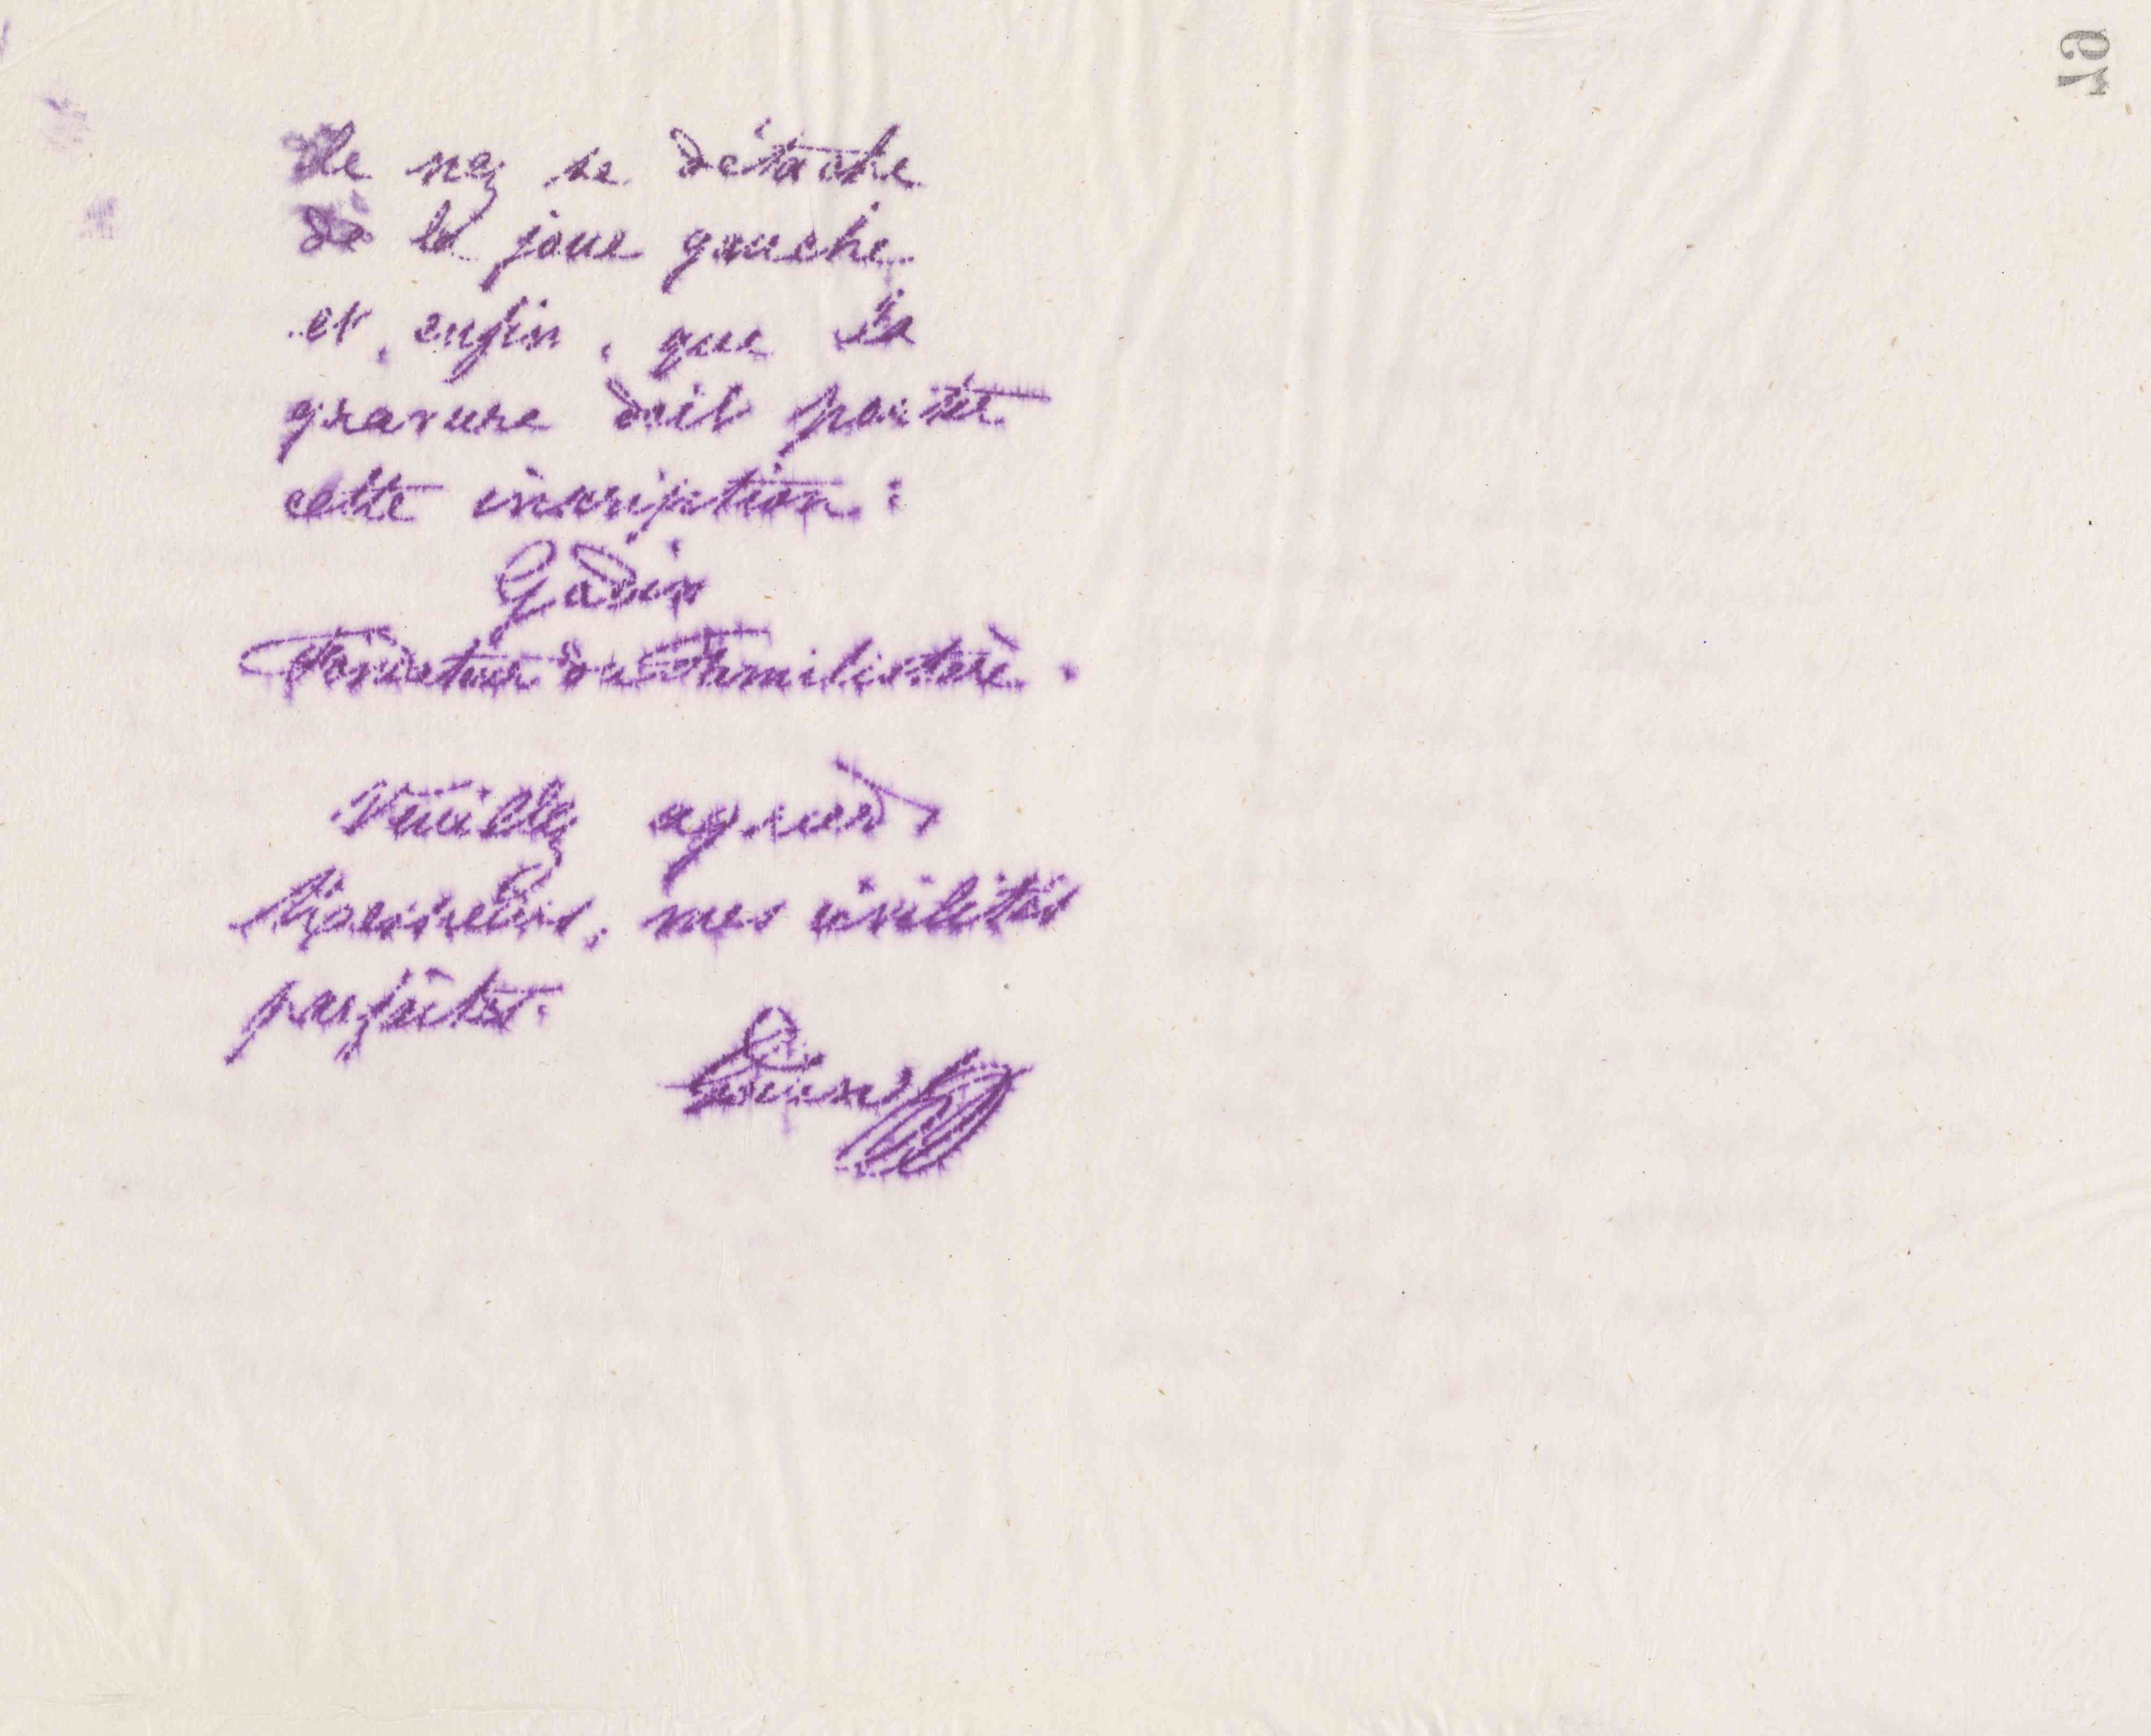 61
le nez se détache
de la joue gauche
et, enfin, que la
gravure doit porter
cette inscription :
Godin
Fondateur du Familistère.
Veuillez agréer,
Messieurs, mes civilités
parfaites.
Godin